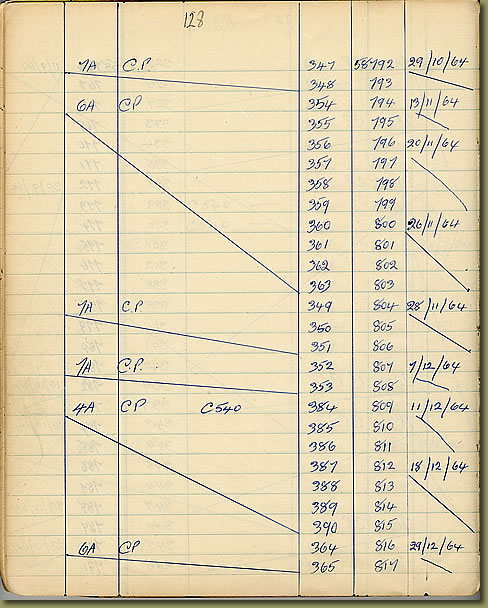 128
7A C.P. 347 58792 29/10/64
348 793
6A CP 354 794 13/11/64
355 795
356 796 20/11/64
357 797
358 798
359 799
360 800 26/11/64
361 801
362 802
363 803
7A C.P. 349 804 28/11/64
350 805
351 806
7A C.P. 352 807 7/12/64
353 808
4A CP C540 384 809 11/12/64
385 810
386 811
387 812 18/12/64
388 813
389 814
390 815
6A CP 364 816 29/12/64
365 817